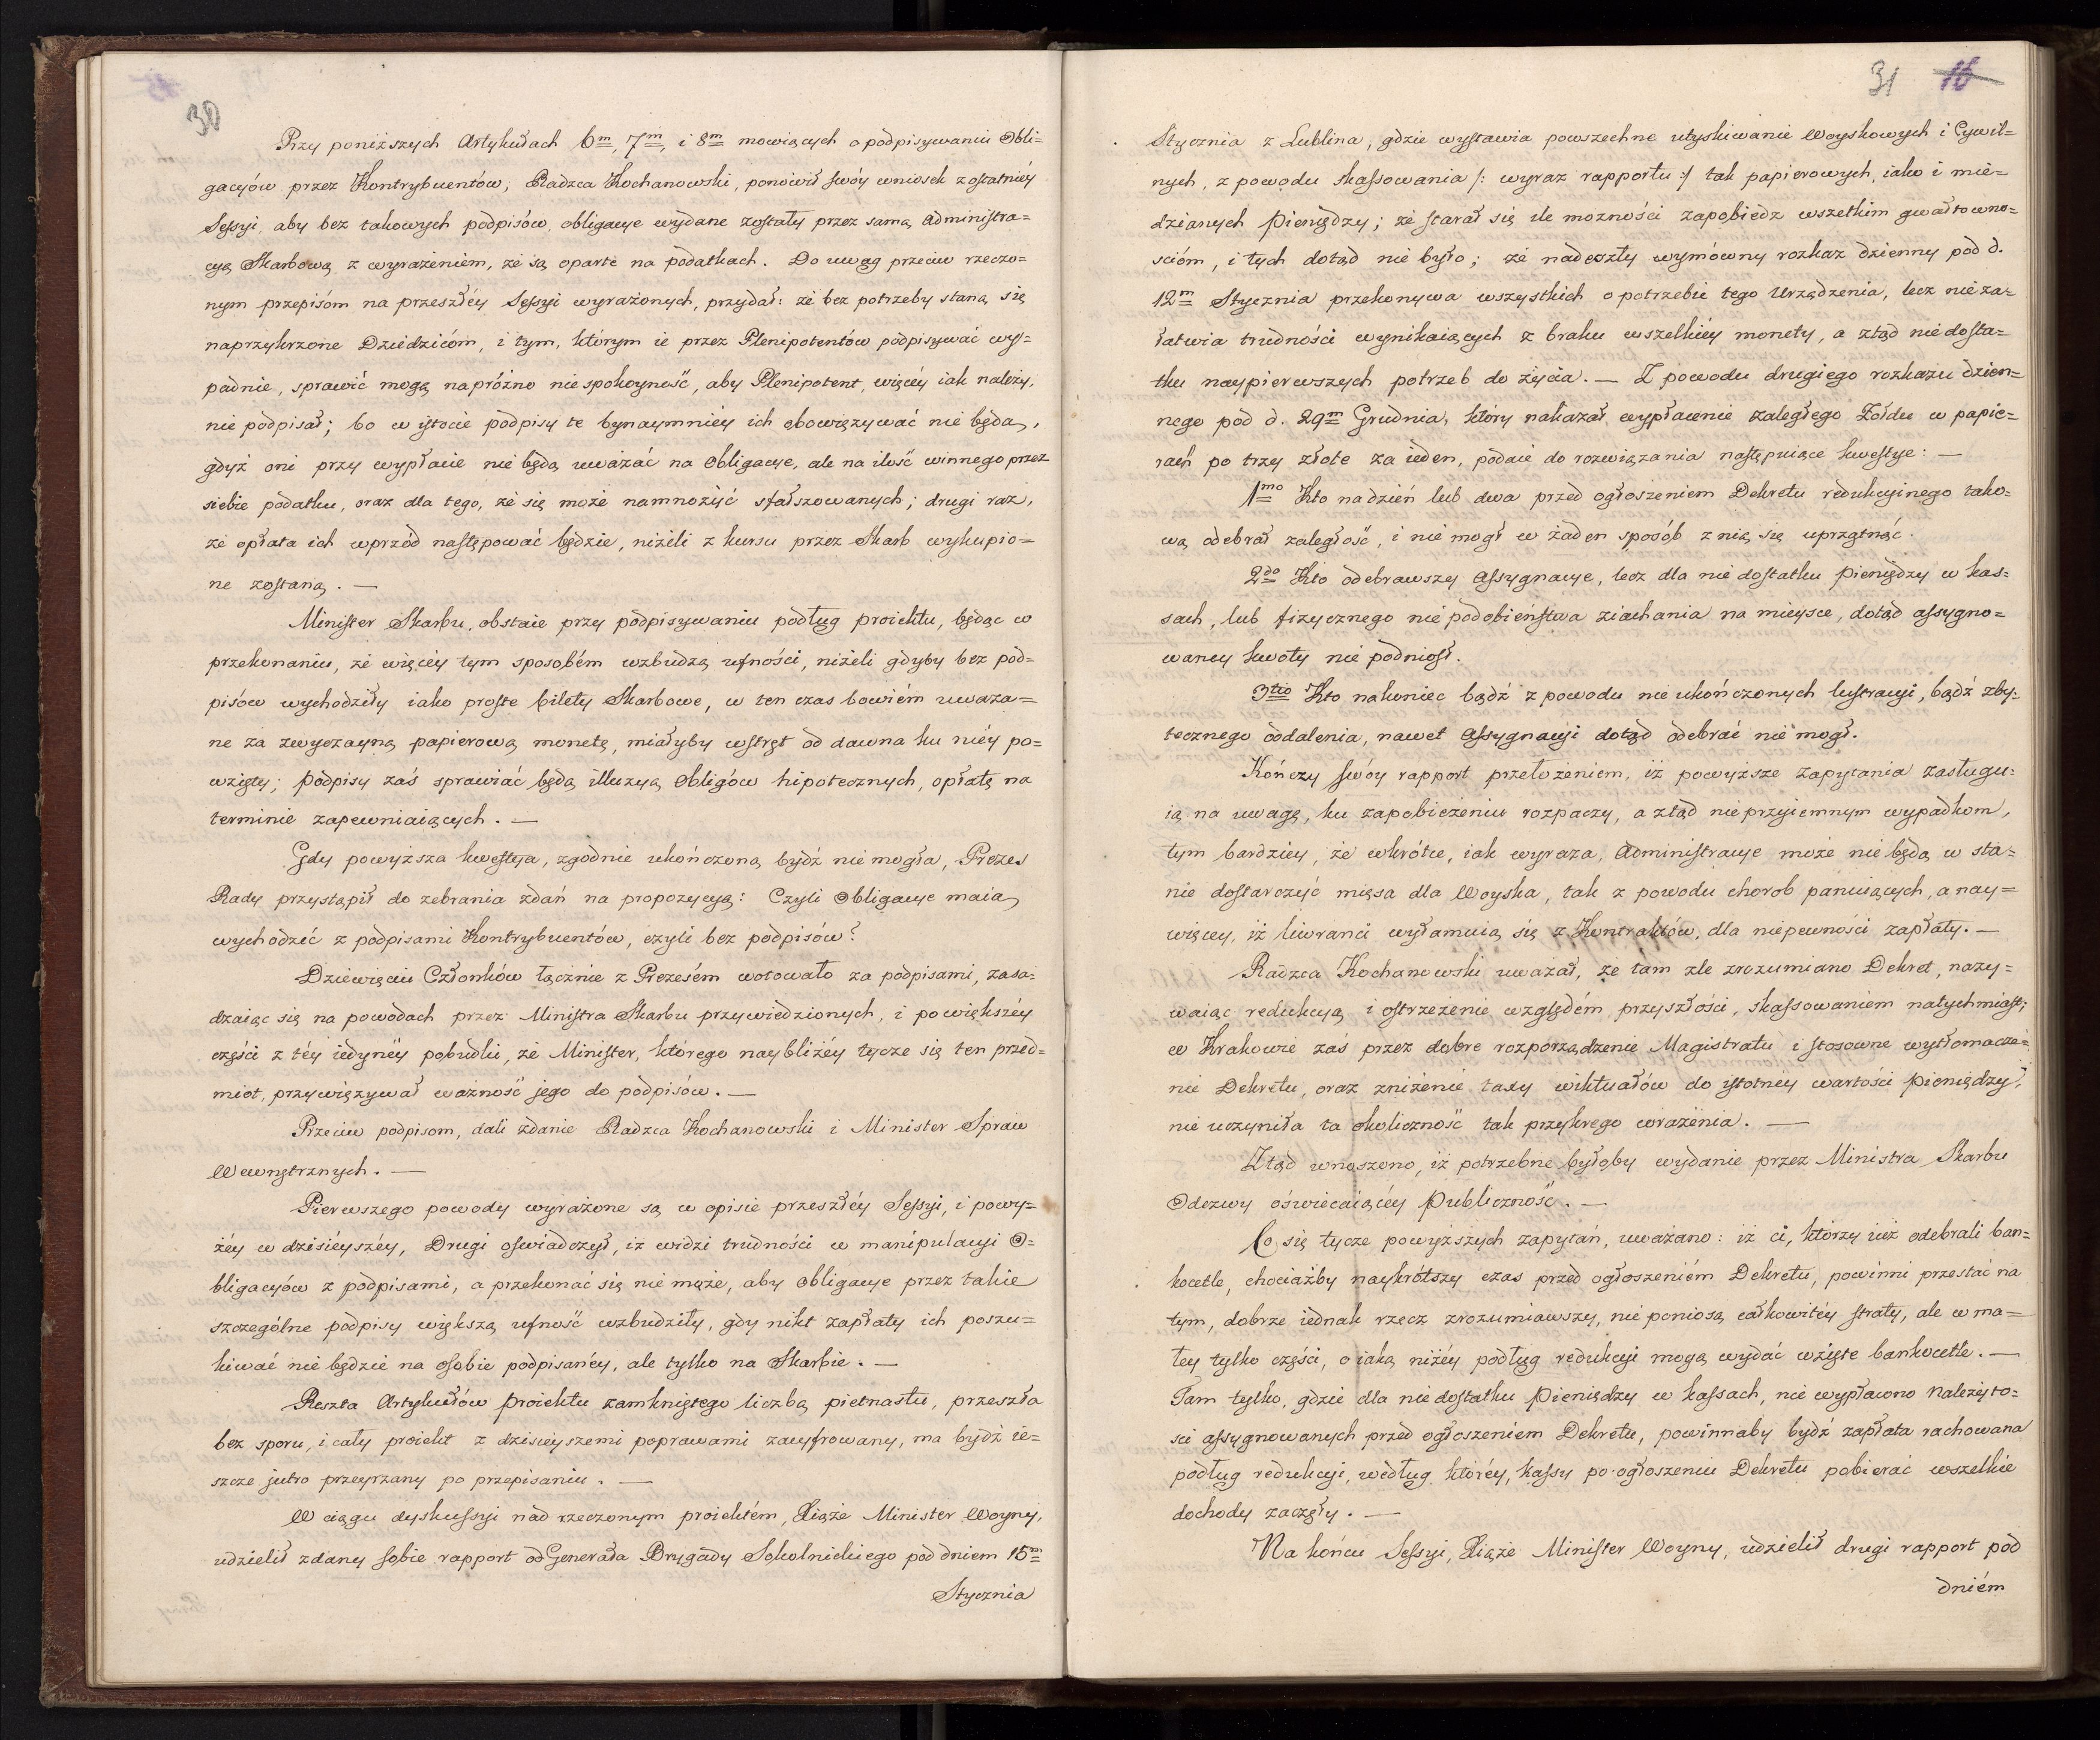 30
Przy poniższych Artykułach 6m, 7m, i 8m mowiących o podpisywaniu Obli=
gacyów przez Kontrybuentów; Radzca Kochanowski, ponowił swóy wniosek z ostatniéy
Sessyi, aby bez takowych podpisów, obligacye wydane zostały przez samą Administra=
cyą Skarbową z wyrażeniem, że są oparte na podatkach. Do uwag przeciw rzeczo=
nym przepisóm na przeszłéy Sessyi wyrażonych, przydał: że bez potrzeby staną się
naprzykrzone Dziedzicóm, i tym, którym ie przez Plenipotentów podpisywać wy=
padnie, sprawić mogą napróżno niespokoyność, aby Plenipotent, więcéy iak należy,
nie podpisał; bo w istocie podpisy te bynaymniéy ich obowięzywać nie będą,
gdyż oni przy wypłacie nie będą uważać na Obligacye, ale na ilość winnego przez
siebie podatku, oraz dla tego, że się może namnożyć sfałszowanych; drugi raz,
że opłata ich wprzód następować będzie, niżeli z kursu przez Skarb wykupio=
ne zostaną. —
Minister Skarbu, obstaie przy podpisywaniu podług proiektu, będąc w
przekonaniu, że więcéy tym sposobém wzbudzą ufności, niżeli gdyby bez pod=
pisów wychodziły iako proste bilety Skarbowe, w ten czas bowiém uważa=
ne za zwyczayną papierową monetę, miałyby wstręt od dawna ku niéy po=
wzięty; podpisy zaś sprawiać będą illuzyą Obligów hipotecznych, opłatę na
terminie zapewniaiących. —
Gdy powyższa kwestya, zgodnie ukończoną bydź nie mogła, Prezes
Rady przystąpił do zebrania zdań na propozycyą: Czyli Obligacye maią
wychodzić z podpisami Kontrybuentów, czyli bez podpisów?
Dziewięciu Członków łącznie z Prezesém wotowało za podpisami, zasa=
dzaiąc się na powodach przez Ministra Skarbu przywiedzionych, i po większéy
części z téy iedynéy pobudki, że Minister, którego naybliżéy tycze się ten przed=
miot, przywięzywał ważność jego do podpisów. —
Przeciw podpisom, dali zdanie Radzca Kochanowski i Minister Spraw
Wewnętrznych. —
Pierwszego powody wyrażone są w opisie przeszłéy Sessyi, i powy=
żéy w dzisiéyszéy, Drugi oświadczył, iż widzi trudności w manipulacyi O=
bligacyów z podpisami, a przekonać się nie może, aby Obligacye przez takie
szczególne podpisy większą ufność wzbudziły, gdy nikt zapłaty ich poszu=
kiwać nie będzie na osobie podpisanéy, ale tylko na Skarbie. —
Reszta Artykułów proiektu zamkniętego liczbą pietnastu, przeszła
bez sporu, i cały proiekt z dzisieyszemi poprawami zacyfrowany, ma bydź ie=
szcze jutro przeyrzany po przepisaniu. —
W ciągu dyskussyi nad rzeczonym proiektém, Xiąże Minister Woyny,
udzielił zdany sobie rapport od Generała Brygady Sokolnickiego pod dniem 15m
Stycznia
31 16
Stycznia z Lublina, gdzie wystawia powszechne utyskiwanie Woyskowych i Cywil=
nych, z powodu skassowania /: wyraz rapportu :/ tak papierowych, iako i mie=
dzianych Pieniędzy; że starał się ile możności zapobiedz wszelkim gwałtowno=
ścióm, i tych dotąd nie było; że nadeszły wymówny rozkaz dzienny pod d.
12m Stycznia przekonywa wszystkich o potrzebie tego Urządzenia, lecz nie za=
łatwia trudności wynikaiących z braku wszelkiéy monety, a ztąd niedosta=
tku naypierwszych potrzeb do życia. — Z powodu drugiego rozkazu dzien=
nego pod d. 29m Grudnia, który nakazał wypłacenie zaległego Żołdu w papie=
rach po trzy złote za ieden, podaie do rozwiązania następuiące kwestye: —
1mo Kto na dzień lub dwa przed ogłoszeniem Dekretu redukcyinego tako=
wą odebrał zaległość, i nie mogł w żaden sposób z nią się uprzątnąć.
2do Kto odebrawszy Assygnacye, lecz dla niedostatku pieniędzy w kas=
sach, lub fizycznego niepodobieństwa ziachania na mieysce, dotąd assygno=
waney kwoty nie podniosł.
3tio Kto nakoniec bądź z powodu nieukończonych lustracyi, bądź zby=
tecznego oddalenia, nawet Assygnacyi dotąd odebrać nie mogł.
Kończy swóy rapport przełożeniem, iż powyższe zapytania zasługu=
ią na uwagę, ku zapobieżeniu rozpaczy, a ztąd nieprzyiemnym wypadkom,
tym bardziey, że wkrótce, iak wyraża, Administracye może nie będą w sta=
nie dostarczyć mięsa dla Woyska, tak z powodu chorob panuiących, a nay=
więcey, iż liwranci wyłamuią się z Kontraktów, dla niepewności zapłaty. —
Radzca Kochanowski uważał, że tam źle zrozumiano Dekret, nazy=
waiąc redukcyą i ostrzeżenie względém przyszłości, skassowaniem natychmiast;
w Krakowie zaś przez dobre rozporządzenie Magistratu i stosowne wytłomacze=
nie Dekretu, oraz zniżenie taxy wiktuałów do istotnéy wartości pieniędzy,
nie uczyniła ta okoliczność tak przykrego wrażenia. —
Ztąd wnoszono, iż potrzebne byłoby wydanie przez Ministra Skarbu
Odezwy oświecaiącéy Publiczność. —
Co się tycze powyższych zapytań, uważano: iż ci, którzy iuż odebrali ban=
kocetle, chociażby naykrótszy czas przed ogłoszeniém Dekretu, powinni przestać na
tym, dobrze iednak rzecz zrozumiawszy, nie poniosą całkowitéy straty, ale w ma=
łey tylko części, o iaką niżéy podług redukcyi mogą wydać wzięte bankocetle. —
Tam tylko, gdzie dla niedostatku Pieniędzy w kassach, nie wypłacono należyto=
ści assygnowanych przed ogłoszeniem Dekretu, powinnaby bydź zapłata rachowana
podług redukcyi, według któréy, kassy po ogłoszeniu Dekretu pobierać wszelkie
dochody zaczęły. —
Na końcu Sessyi, Xiąże Minister Woyny, udzielił drugi rapport pod
dniém